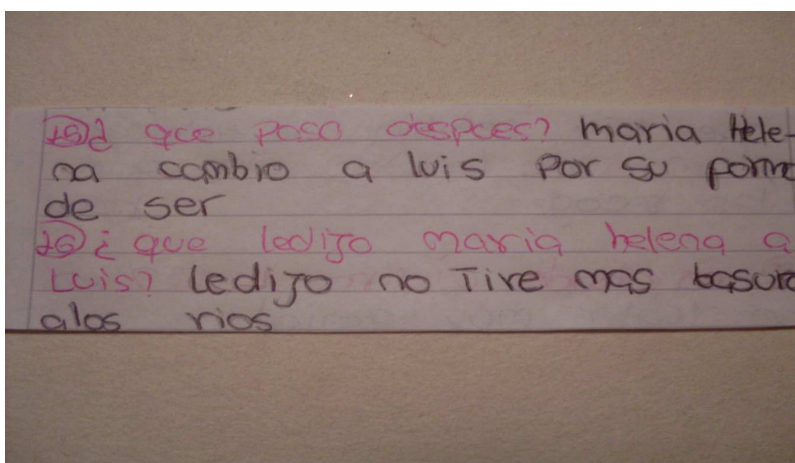 15) ¿ que paso despues? maria Hele-
na cambio a luis por su forma
de ser
16) ¿ que ledijo maria helena a
Luis? ledijo no Tire mas basura
alos rios